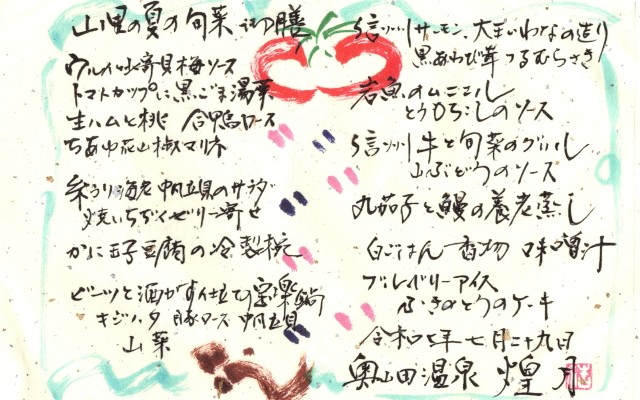 山里の夏の旬菜 御膳
ウルイ 寄 貝 梅ソース
トマトカップに黒ごま湯葉
生ハムと桃 合鴨ロース
ちあゆ 花山椒マリネ
糸うり 海老 帆立貝のサラダ
焼いちぢくゼリー寄せ
かに玉子豆腐の冷製椀
ビーツと酒かす仕立て 宝楽鍋
キジハタ 豚ロース 帆立貝
山菜
信州サーモン、大王いわなの造り
黒あわび茸 つるむらさき
岩魚のムニエル
とうもろこしのソース
信州牛と旬菜のグリル
山ぶどうのソース
丸茄子と鰻の養老蒸し
白ごはん 香物 味噌汁
ブルーベリーアイス
ふきのとうのケーキ
令和七年 七月二十九日
奥山田温泉 煌月